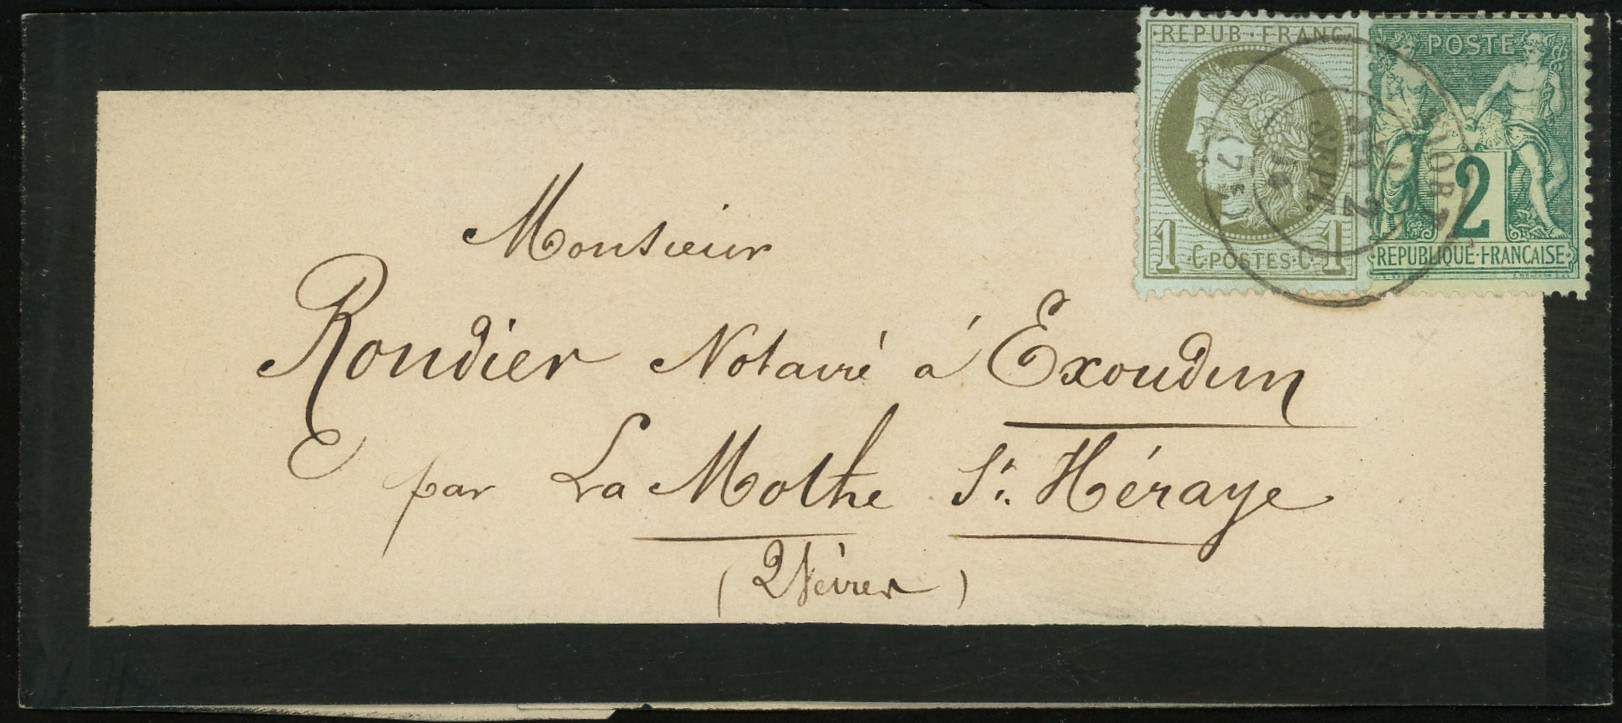 REPUB·FRANC
1 C POSTES C 1
POSTE
2
REPUBLIQUE·FRANÇAISE
NIORT
2
SEPT.
76
(75)
Monsieur
Roudier Notaire à Exoudun
par La Mothe St. Héraye
(2 Sèvres)